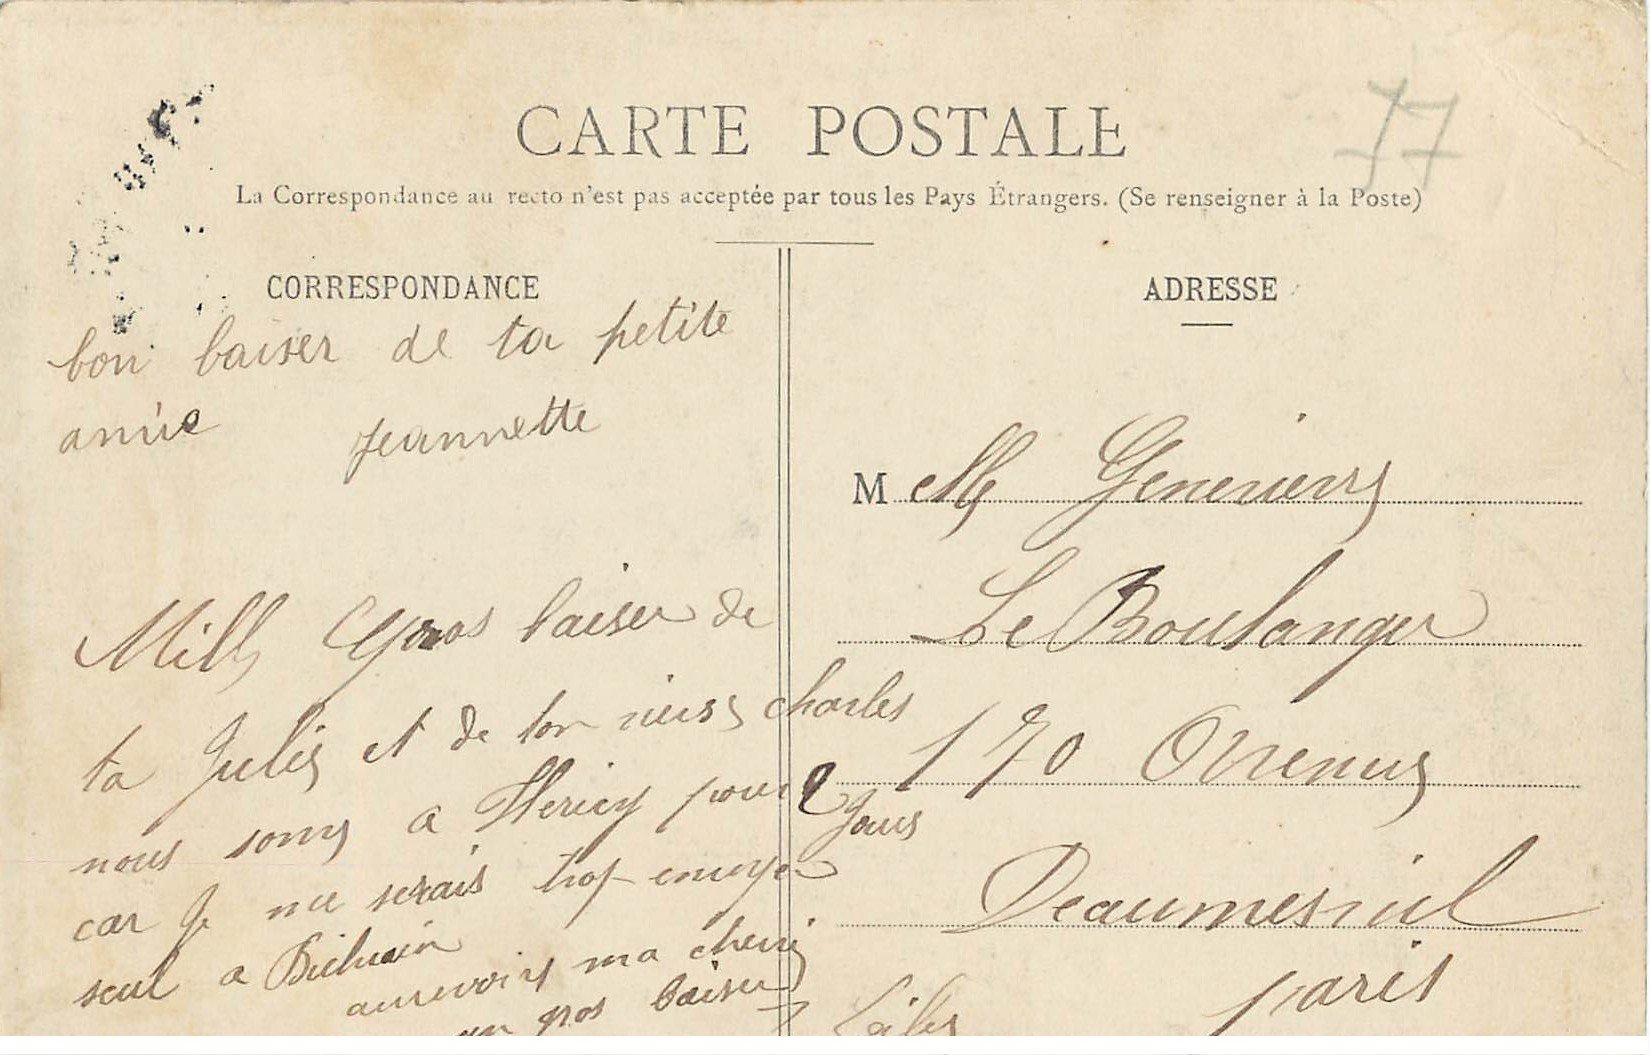 77
CARTE POSTALE
La Correspondance au recto n'est pas acceptée par tous les Pays Étrangers. (Se renseigner à la Poste)
CORRESPONDANCE
bon baiser de ta petite
amie Jeannette
Mille Gros baiser de
ta Julie et de ton charles
nous somes a Hericy pour 2 Jours
car Je me serais trop
seul a
aurevoire ma cherie
un gros baiser
ADRESSE
M elle Genevieve
Le Boulanger
170 Avenue
Deaumesnil
paris